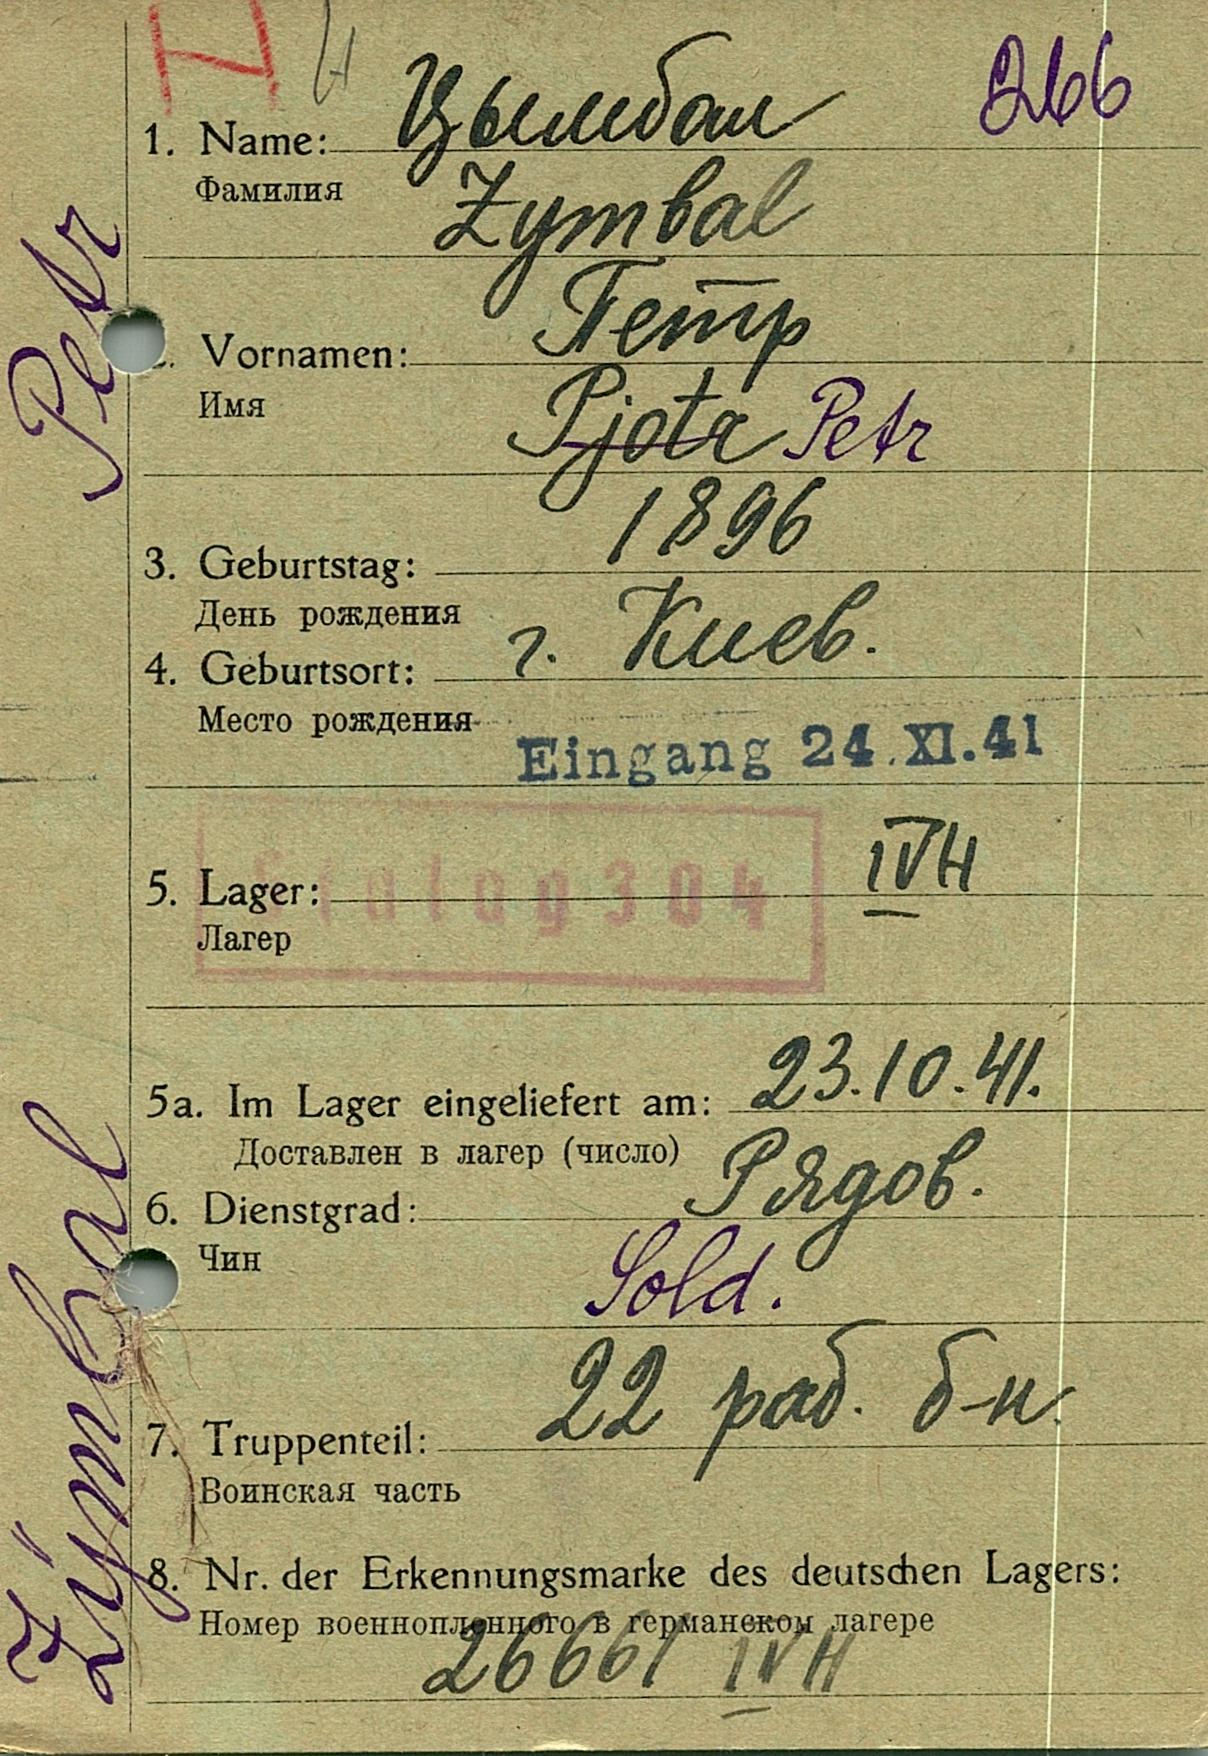 Н
266
1. Name: Цымбал
Фамилия
Zymbal
Петр
Vornamen:
Имя
Pjotr Petr
1896
3. Geburtstag:
День рождения
4. Geburtsort: г. Киев.
Место рождения
Eingang 24.XI.41
IVH
5. Lager: Stalag 304
Лагер
5a. Im Lager eingeliefert am: 23.10.41.
Доставлен в лагер (число)
6. Dienstgrad: Рядов.
Чин
Sold.
22 раб. б-н.
7. Truppenteil:
Воинская часть
8. Nr. der Erkennungsmarke des deutschen Lagers:
Номер военнопленного в германском лагере
26661 IVH
Zymbal Petr